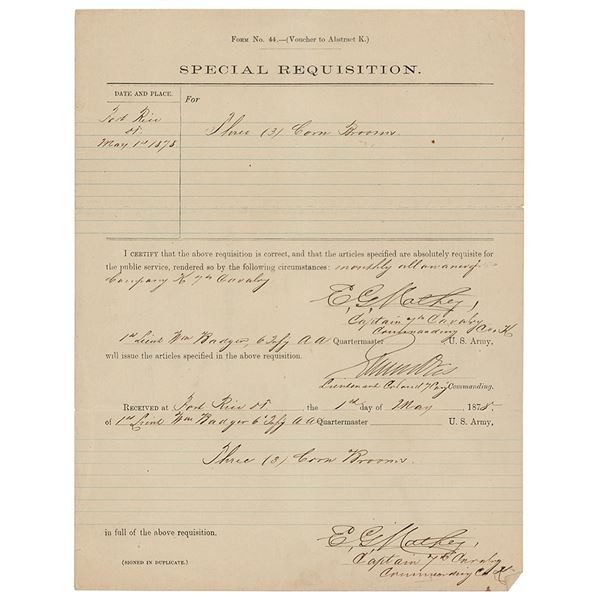 FORM No. 44.—(Voucher to Abstract K.)
SPECIAL REQUISITION.
DATE AND PLACE.
For
Fort Rice
DT
May 1st 1878
Three (3) Corn Brooms.
I CERTIFY that the above requisition is correct, and that the articles specified are absolutely requisite for
the public service, rendered so by the following circumstances: monthly allowance
Company K 7th Cavalry
E. G. Mathey,
Captain 7th Cavalry
Commanding Co K
1st Lieut Wm Badger, 6 Infy A A Quartermaster U. S. Army,
will issue the articles specified in the above requisition.
Lieutenant Colonel 7 Cavy Commanding.
RECEIVED at Fort Rice DT, the 1st day of May, 1878,
of 1st Lieut Wm Badger 6 Infy A A Quartermaster U. S. Army,
Three (3) Corn Brooms.
in full of the above requisition.
E. G. Mathey,
Captain 7th Cavalry
Commanding Co K
(SIGNED IN DUPLICATE.)